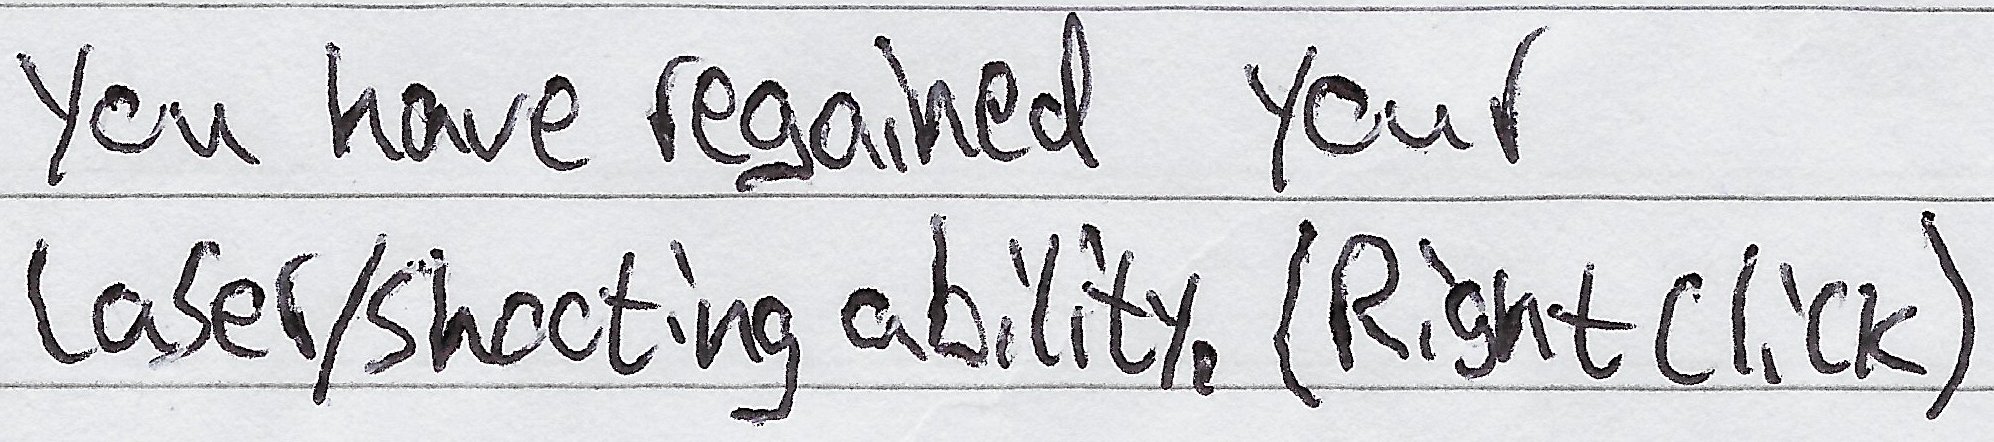 You have regained your
Laser/shooting ability. (Right Click)